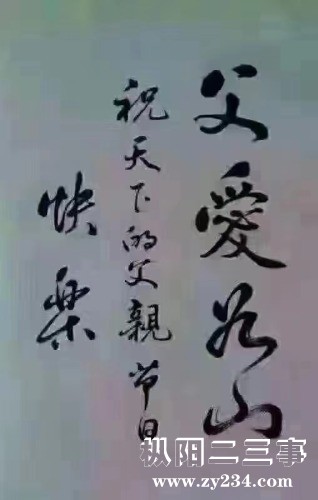 父愛如山
祝天下的父親节日
快樂
枞阳二三事
www.zy234.com